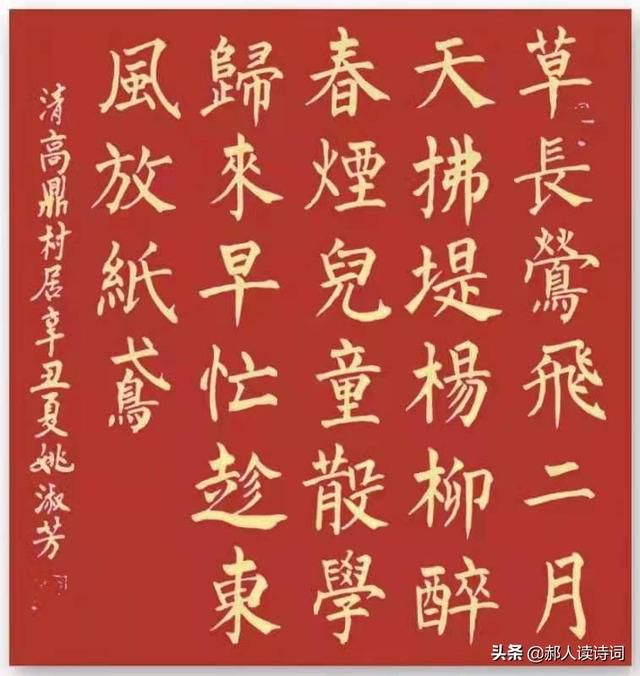 草長鶯飛二月
天拂堤楊柳醉
春煙兒童散學
歸來早忙趁東
風放紙鳶
清高鼎村居辛丑夏姚淑芳
头条@郝人读诗词